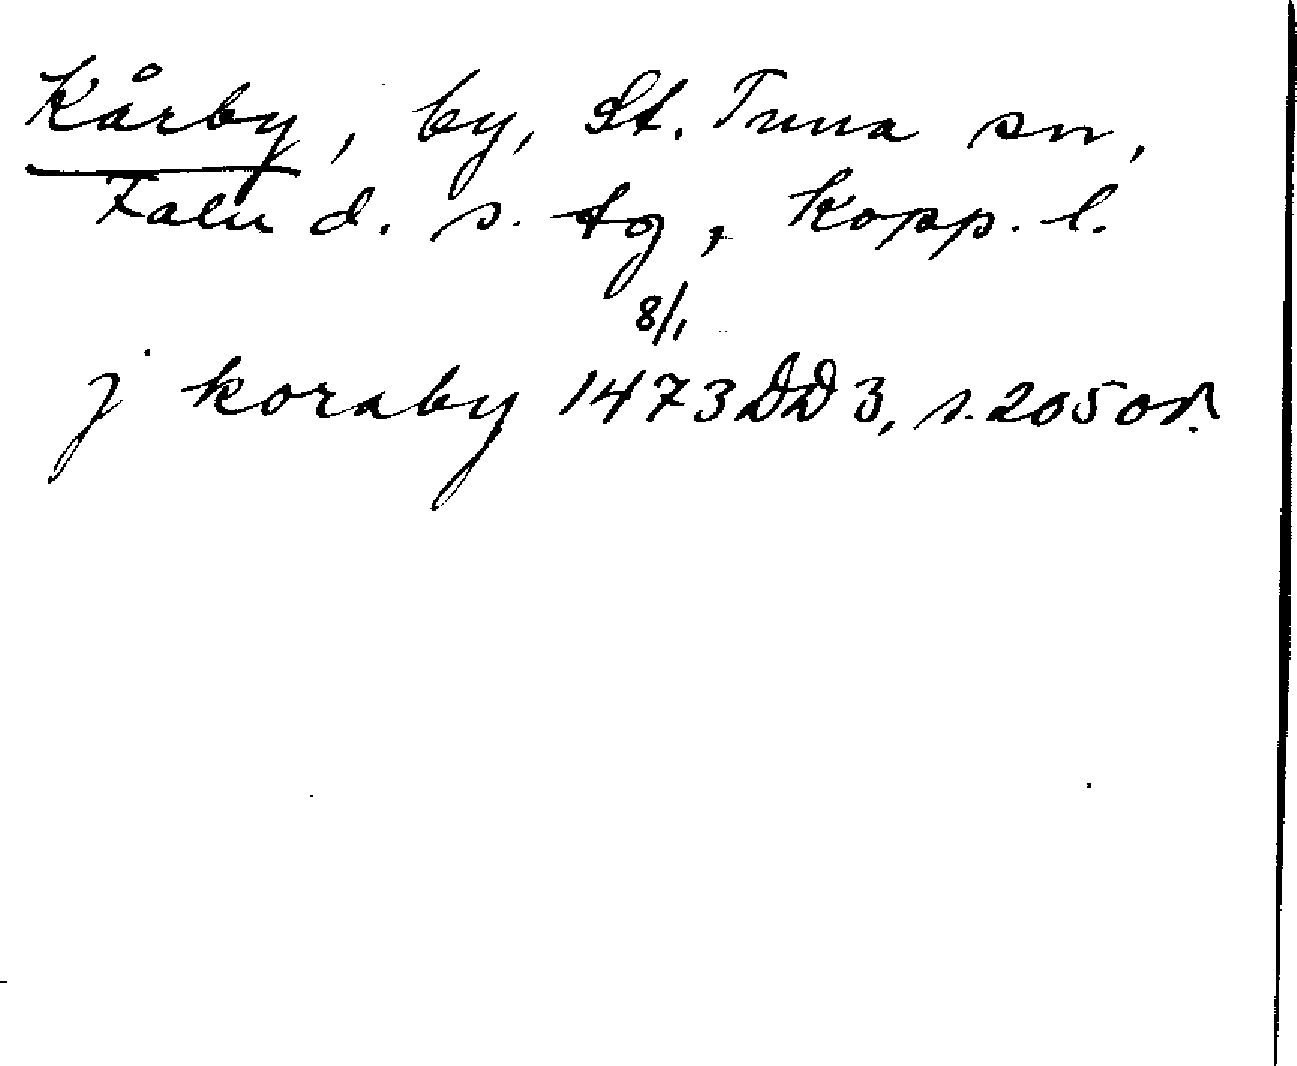 Kårby, by, St. Tuna sn,
Falu d. s. tg, Kopp. l.
8/1
j koraby 1473 DD 3, s. 205 or.